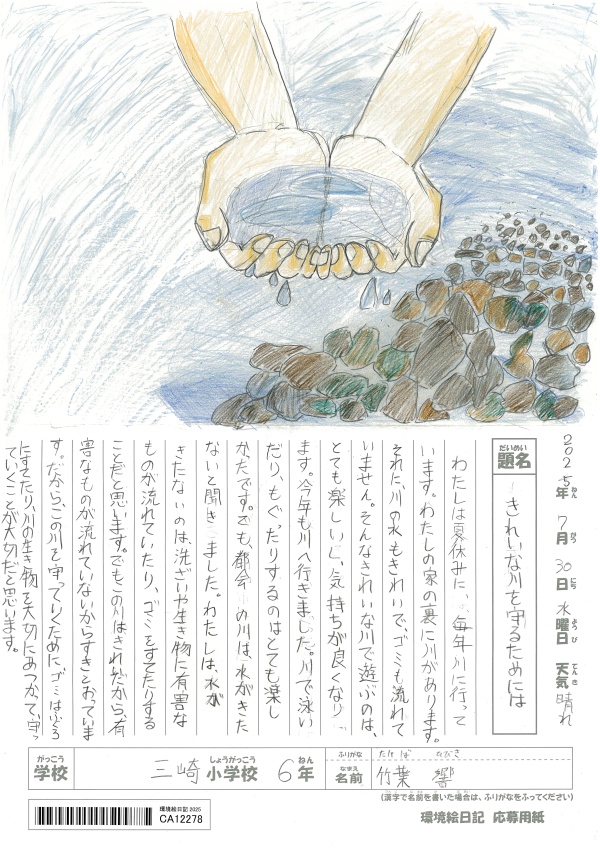 2025年 7月 30日 水曜日 天気 晴れ
ねん がつ にち ようび てんき
だいめい
題名
きれいな川を守るためには
わたしは夏休みに、毎年川に行って
います。わたしの家の裏に川があります。
それに、川の水もきれいで、ゴミも流れて
いません。そんなきれいな川で遊ぶのは、
とても楽しいし、気持ちが良くなり
ます。今年も川へ行きました。川で泳い
だり、もぐったりするのはとても楽し
かったです。でも、都会の川は、水がきた
ないと聞きました。わたしは、水が
きたないのは、洗ざいや生き物に有害な
ものが流れていたり、ゴミをすてたりする
ことだと思います。でもこの川はきれいだから、有
害なものが流れていないからすきとおっていま
す。だから、この川を守っていくために、ゴミはふくろ
にすてたり、川の生き物を大切にあつかって、守っ
ていくことが大切だと思います。
がっこう
学校
三崎
しょうがっこう
小学校
6
ねん
年
ふりがな
たけば ひびき
なまえ
名前
竹葉 響
(漢字で名前を書いた場合は、ふりがなをふってください)
環境絵日記 2025
CA12278
環境絵日記 応募用紙